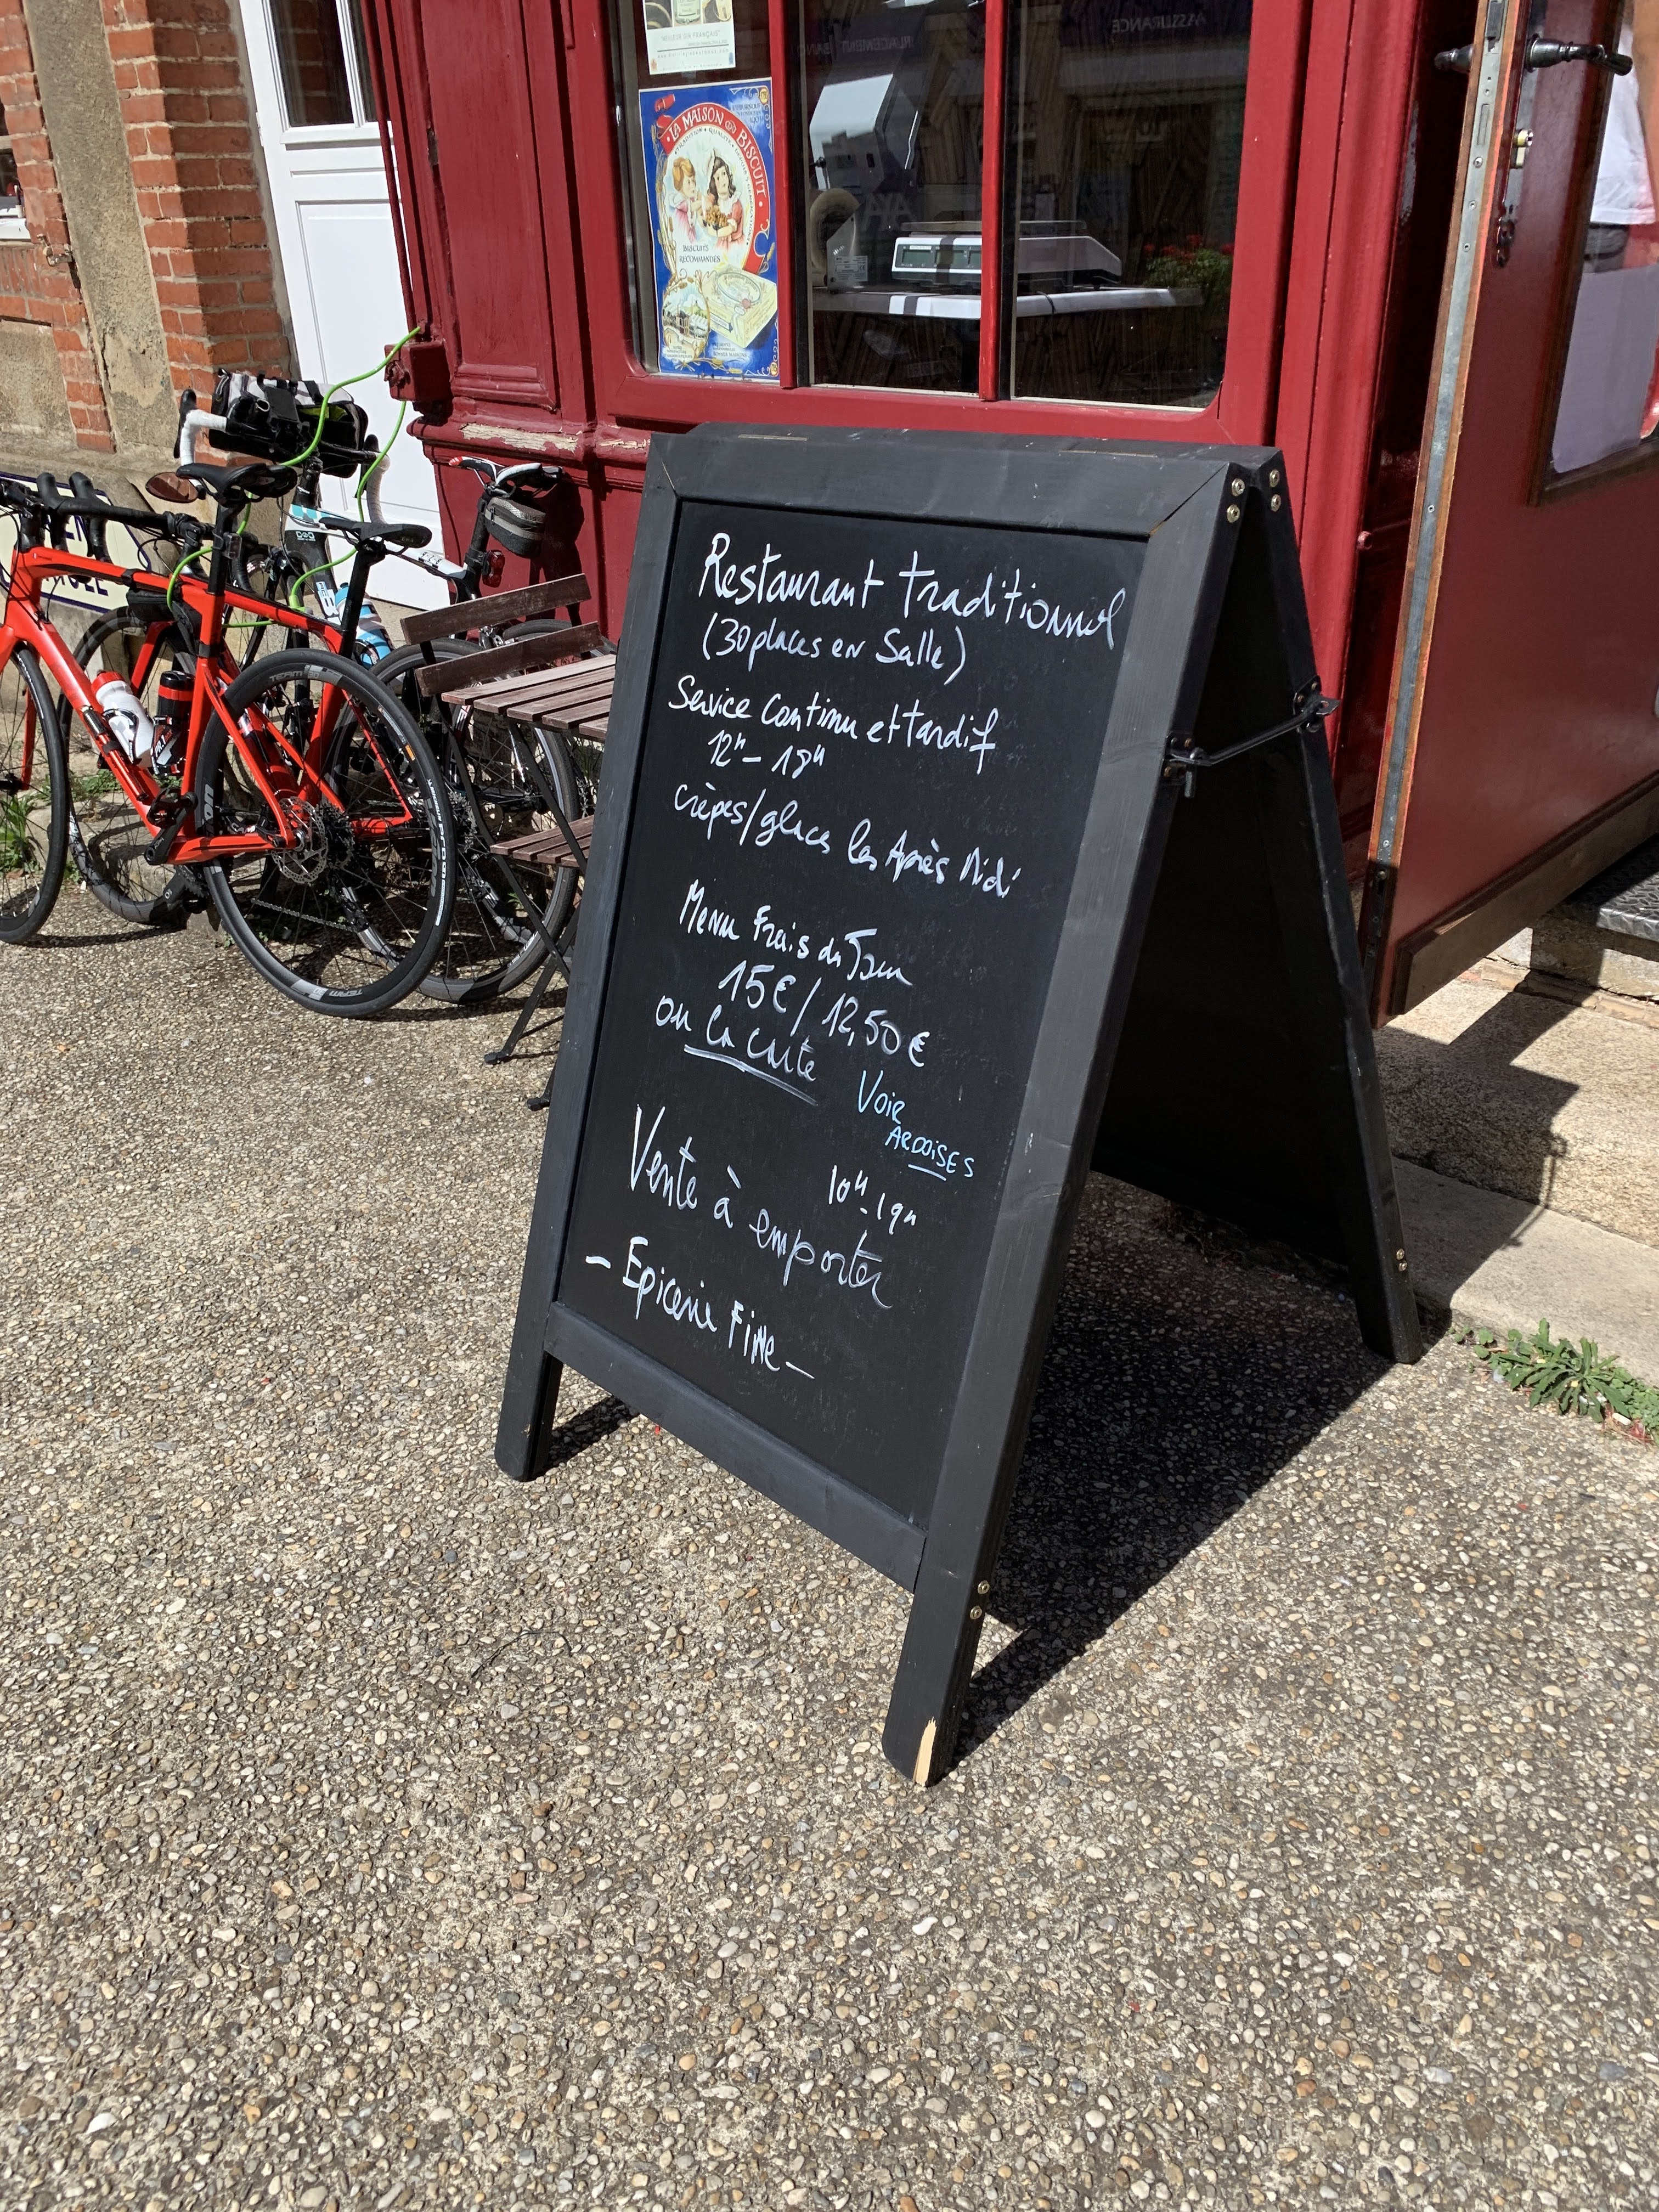 LA MAISON DU BISCUIT
BISCUITS
RECOMMANDÉS
ASSURANCE
Restaurant traditionnel
(30 places en Salle)
Service Continu et tardif
12h - 18h
crèpes/glaces les Après Midi
Menu Frais du Jour
15€ / 12,50€
ou la carte
Voir
ARDOISES
10h - 19h
Vente à emporter
- Epicerie Fine -